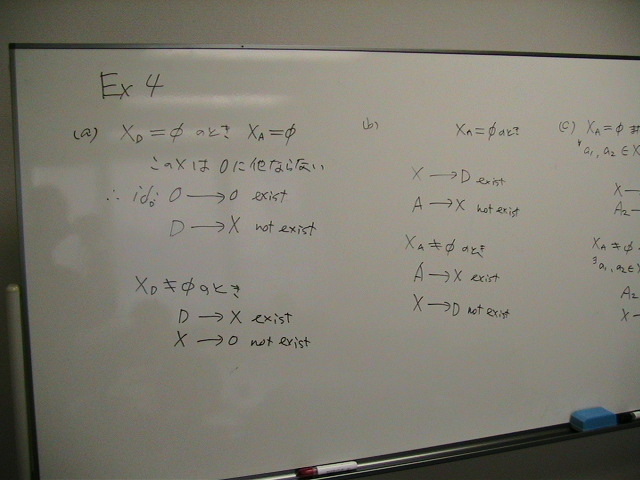 Ex 4
(a) X_D = φ のとき X_A = φ
このXは 0に他ならない
∴ id₀: 0 → 0 exist
D → X not exist
X_D ≠ φ のとき
D → X exist
X → 0 not exist
(b) X_A = φ のとき
X → D exist
A → X not exist
X_A ≠ φ のとき
A → X exist
X → D not exist
(c) X_A = φ
∀a₁, a₂ ∈ X
X →
A₂ →
X_A ≠ φ
∃a₁, a₂ ∈
A₂
X →